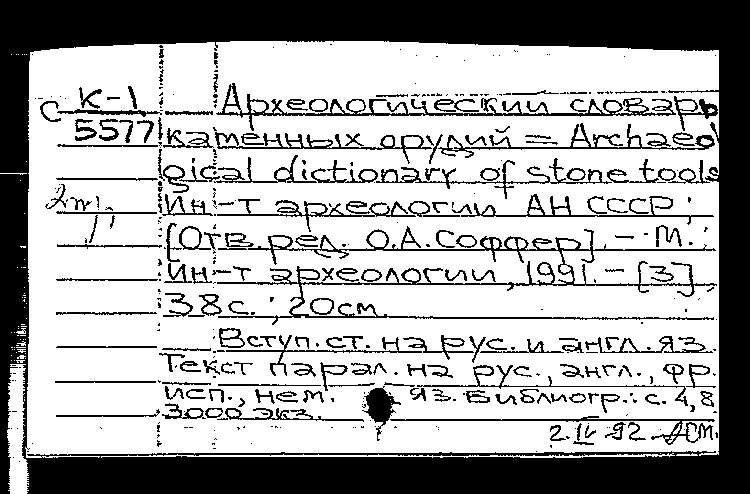 С К-1
5577
2 эк.
Археологический словарь
каменных орудий = Archaeolo
gical dictionary of stone tools
Ин-т археологии АН СССР ;
[Отв. ред. О.А. Соффер]. - М. :
Ин-т археологии, 1991. - [3],
38 с. ; 20 см.
Вступ. ст. на рус. и англ. яз.
Текст парал. на рус., англ., фр.
исп., нем. яз. Библиогр.: с. 4, 8
3000 экз.
2.IV-92